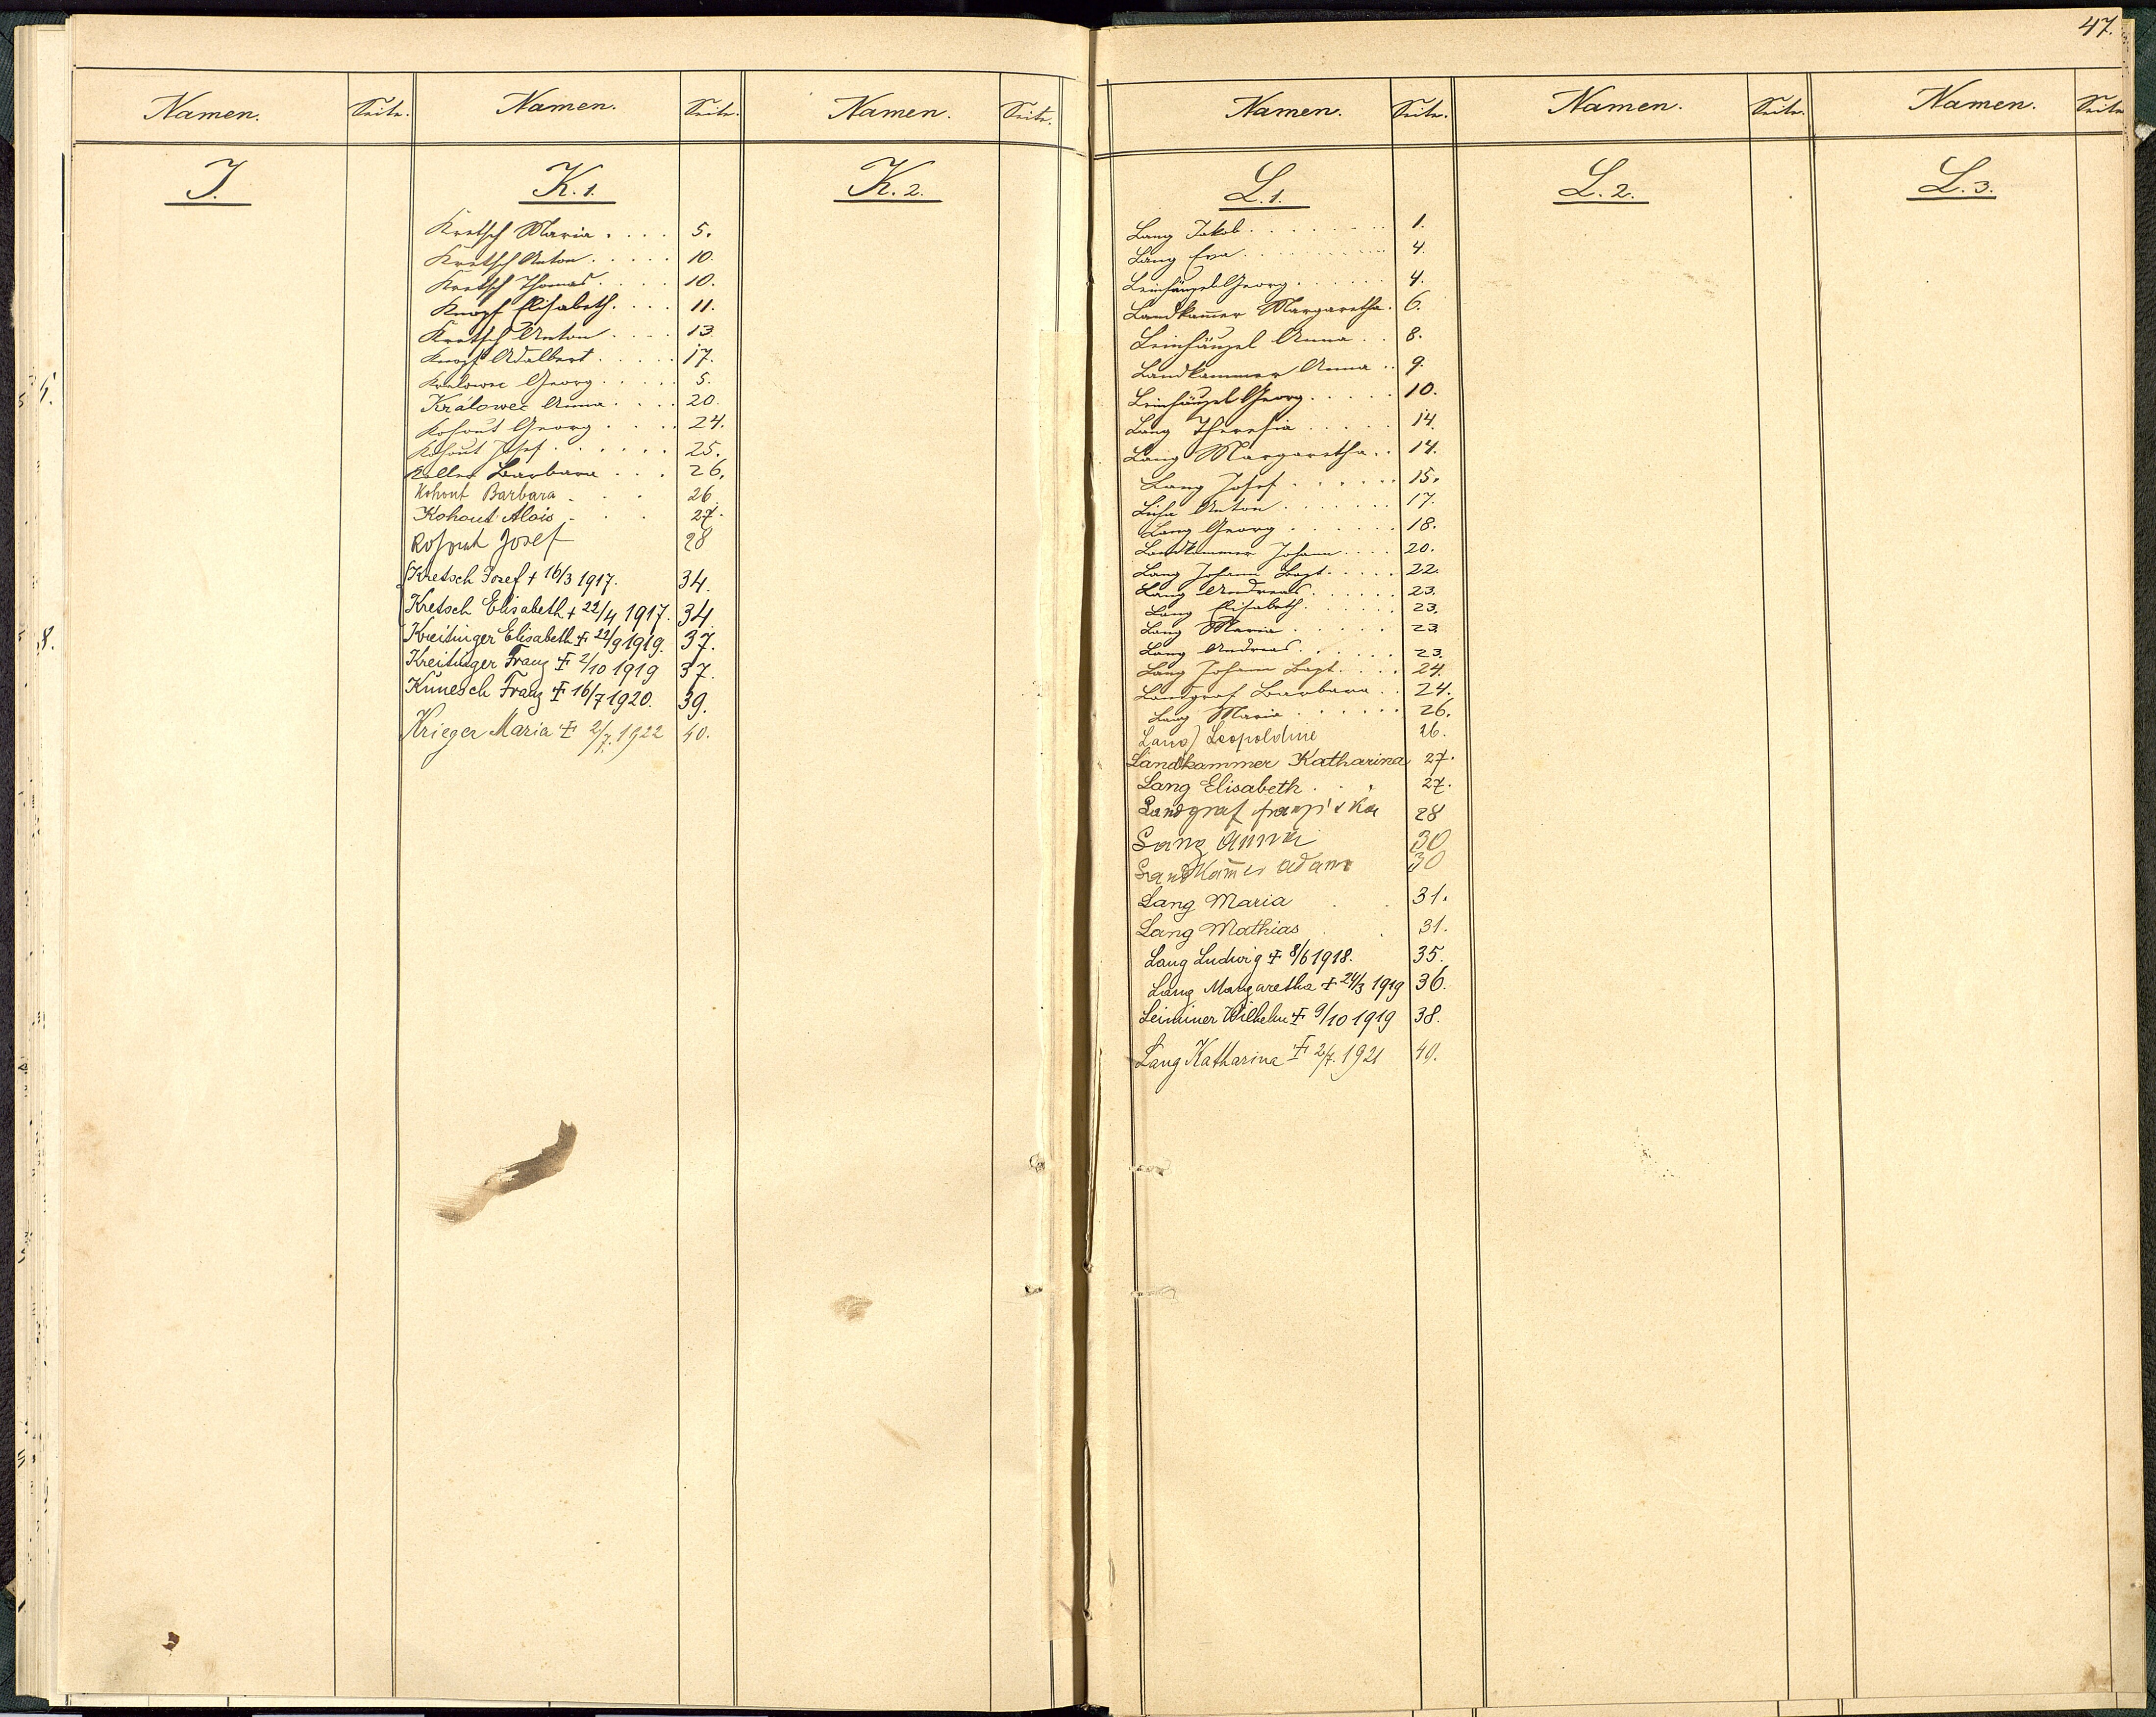 47.
Namen. Seite. Namen. Seite. Namen. Seite.
J. K. 1. K. 2.
Kretsch Maria . . . . 5.
Kretsch Anton . . . . . 10.
Kretsch Thomas . . . . 10.
Knopf Elisabeth. . . . 11.
Kretsch Anton . . . . 13.
Knopf Adalbert . . . . . 17.
Kralowec Georg . . . . . 5.
Králowec Anna . . . . 20.
Kohout Georg . . . . 24.
Kohout Josef . . . . . . 25.
Koller Barbara . . . 26.
Kohout Barbara . . . 26.
Kohout Alois . . . 27.
Kohout Josef 28
Kretsch Josef + 16/3 1917. 34.
Kretsch Elisabeth + 22/4 1917. 34
Kreitinger Elisabeth + 22/9 1919. 37.
Kreitinger Franz + 2/10 1919 37.
Kunesch Franz + 16/7 1920. 39.
Krieger Maria + 2/7. 1922 40.
Namen. Seite. Namen. Seite. Namen. Seite
L. 1. L. 2. L. 3.
Lang Jakob . . . . . . . . 1.
Lang Eva . . . . . . . . 4.
Leinhäupel Georg . . . . . . 4.
Landkam̄er Margaretha . 6.
Leinhäupel Anna . . 8.
Landkammer Anna . . 9.
Leinhäupel Georg . . . . . 10.
Lang Theresia . . . . . 14.
Lang Margaretha . . 14.
Lang Josef . . . . . . 15.
Anton . . . . . . . 17.
Lang Georg . . . . . . 18.
Landkammer Johann . . . . 20.
Lang Johann Bapt. . . . . 22.
Lang Andreas . . . . . . 23.
Lang Elisabeth . . . . . . 23.
Lang Maria . . . . . 23.
Lang Andreas . . . . . . 23.
Lang Johann Bapt. . . . 24.
Landgraf Barbara . . 24.
Lang Maria . . . . . . 26.
Lang Leopoldine 26.
Landkammer Katharina 27.
Lang Elisabeth . . . 27.
Landgraf Franziska 28
Lang Anna 30
Landkam̄er Adam 30
Lang Maria . . 31.
Lang Mathias . . 31.
Lang Ludwig + 8/6 1918. 35.
Lang Margaretha + 24/3 1919 36.
Leiminer Wilhelm + 9/10 1919 38.
Lang Katharina + 2/7. 1921 40.